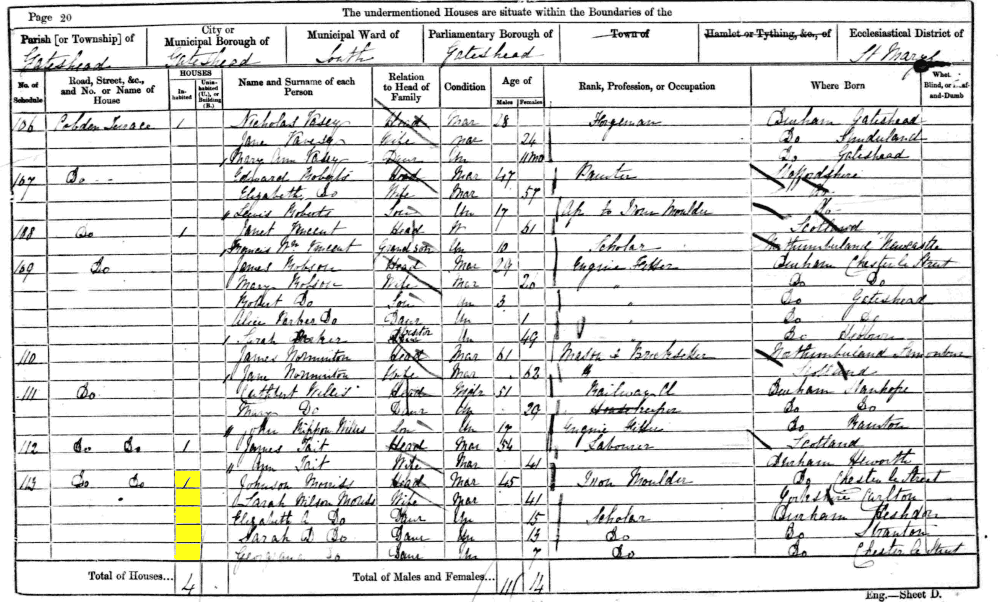 Page 20
The undermentioned Houses are situate within the Boundaries of the
Parish [or Township] of Gateshead
City or Municipal Borough of Gateshead
Municipal Ward of South
Parliamentary Borough of Gateshead
Town of
Hamlet or Tything, &c., of
Ecclesiastical District of St Marys
No. of Schedule
Road, Street, &c., and No. or Name of House
HOUSES
In-habited
Unin-habited (U.), or Building (B.)
Name and Surname of each Person
Relation to Head of Family
Condition
Age of
Males
Females
Rank, Profession, or Occupation
Where Born
Whet. Blind, or Deaf-and-Dumb
106 Cobden Terrace 1 Nicholas Vasey Head Mar 18 Forgeman Durham Gateshead
Jane Wife Mar 24 Do Sunderland
Mary Ann Vasey Daur Un 11mo Do Gateshead
107 Do Edward Roberts Head Mar 47 Painter Staffordshire
Elizabeth Do Wife Mar 57 Do
Lewis Roberts Son Un 17 App to Iron Moulder Do
108 Do 1 Janet Vincent Head W 61 Scotland
Francis Wm Vincent Grandson Un 10 Scholar Northumberland Newcastle
109 Do James Robson Head Mar 29 Engine Fitter Durham Chester le Street
Mary Robson Wife Mar 20 " Do Do
Robert Do Son Un 3 " Do Gateshead
Alice Parker Do Daur Un 1 " Do Do
Sarah Visitor Un 49 Do
110 James Norminton Head Mar 61 Mason & Northumberland
Jane Norminton Wife Mar 62 " Scotland
111 Do Cuthbert Willis Head 51 Railway Cl Durham Stanhope
Mary Do Daur Un 29 Do Do
John Rippon Willis Son Un 17 Engine Fitter Do
112 Do Do 1 James Tait Head Mar 54 Labourer Scotland
" Ann Tait Wife Mar 41 Durham Heworth
113 Do Do 1 Johnson Morriss Head Mar 45 Iron Moulder Do Chester le Street
Sarah Wilson Morriss Wife Mar 41 Yorkshire Carlton
Elizabeth A Do Daur Un 15 Scholar Durham
Sarah D Do Daur Un 13 Do Do Stranton
Georgiana Do Daur Un 7 Do Do Chester le Street
Total of Houses... 4
Total of Males and Females... 11 14
Eng.—Sheet D.